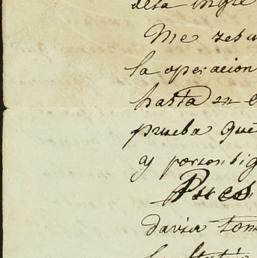 desa ingre
Me resu
la operacion
hasta en e
prueba que
y por
Pues
davia tom